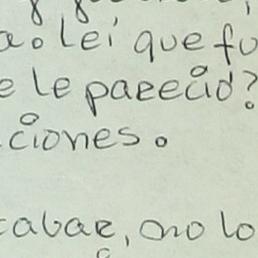 a. Leí que fu
e le pareció?
ciones.
cabar, no lo